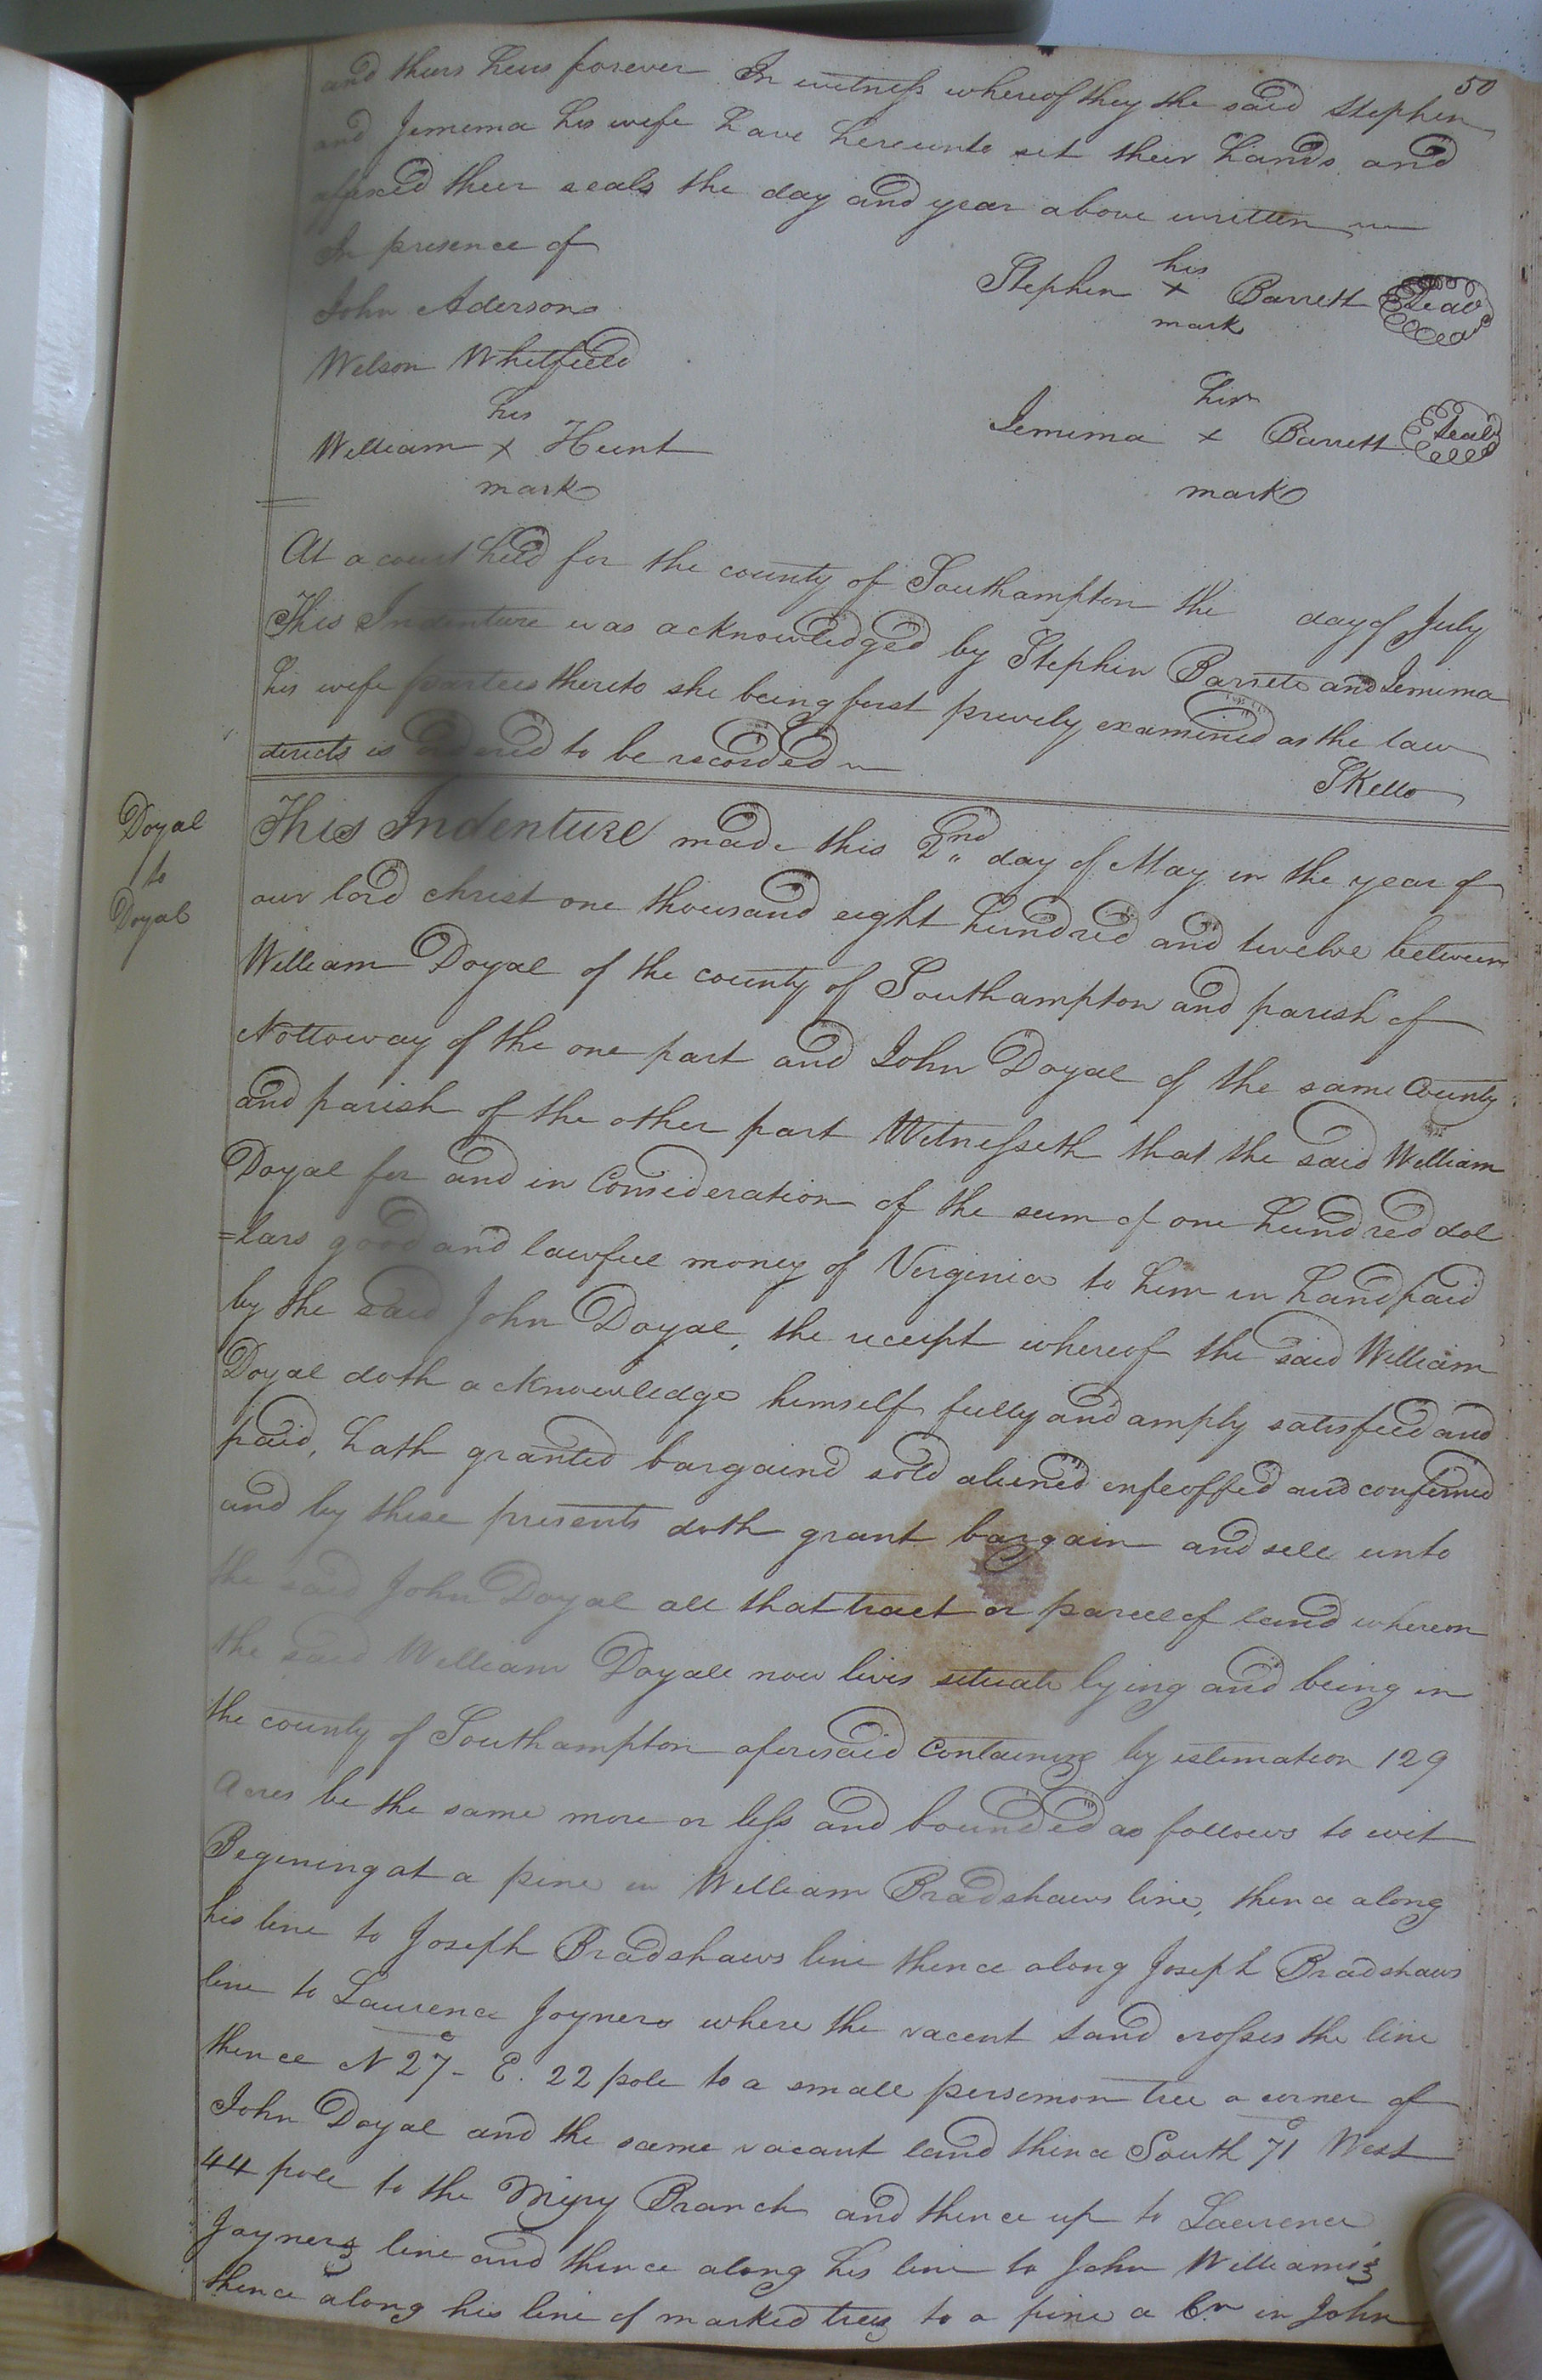 50
and theirs heirs forever In witness whereof they the said Stephen
and Jemima his wife have hereunto set their hands and
affixed their seals the day and year above written
In presence of
John Aderson
Welson Whitfield
his
William x Hunt
mark
his
Stephen + Barrett Seal
mark
her
Jemima x Barrett Seal
mark
At a court held for the county of Southampton the day of July
This Indenture was acknowledged by Stephen Barrett and Jemima
his wife parties thereto she being first privily examined as the law
directs is ordered to be recorded
SKello
Doyal
to
Doyal
This Indenture made this 2nd day of May in the year of
our lord christ one thousand eight hundred and twelve between
William Doyal of the county of Southampton and parish of
Nottoway of the one part and John Doyal of the same County
and parish of the other part Witnesseth that the said William
Doyal for and in Consideration of the sum of one hundred dol
=lars good and lawfull money of Virginia to him in hand paid
by the said John Doyal, the receipt whereof the said William
Doyal doth acknowledge himself fully and amply satisfied and
paid, hath granted bargaind sold aliened enfeoffed and confirmed
and by these presents doth grant bargain and sell unto
the said John Doyal all that tract or parcel of land whereon
the said William Doyall now lives situate lying and being in
the county of Southampton aforesaid Containing by estimation 129
Acres be the same more or less and bounded as follows to wit
Begining at a pine in William Bradshaws line, thence along
his line to Joseph Bradshaws line thence along Joseph Bradshaws
line to Laurence Joyners where the vacent land crosses the line
thence N 27° E. 22 pole to a small persemon tree a corner of
John Doyal and the same vacant land thence South 71° West
44 pole to the Miry Branch and thence up to Laurence
Joyners line and thence along his line to John Williams's
thence along his line of marked trees to a pine a Cr in John